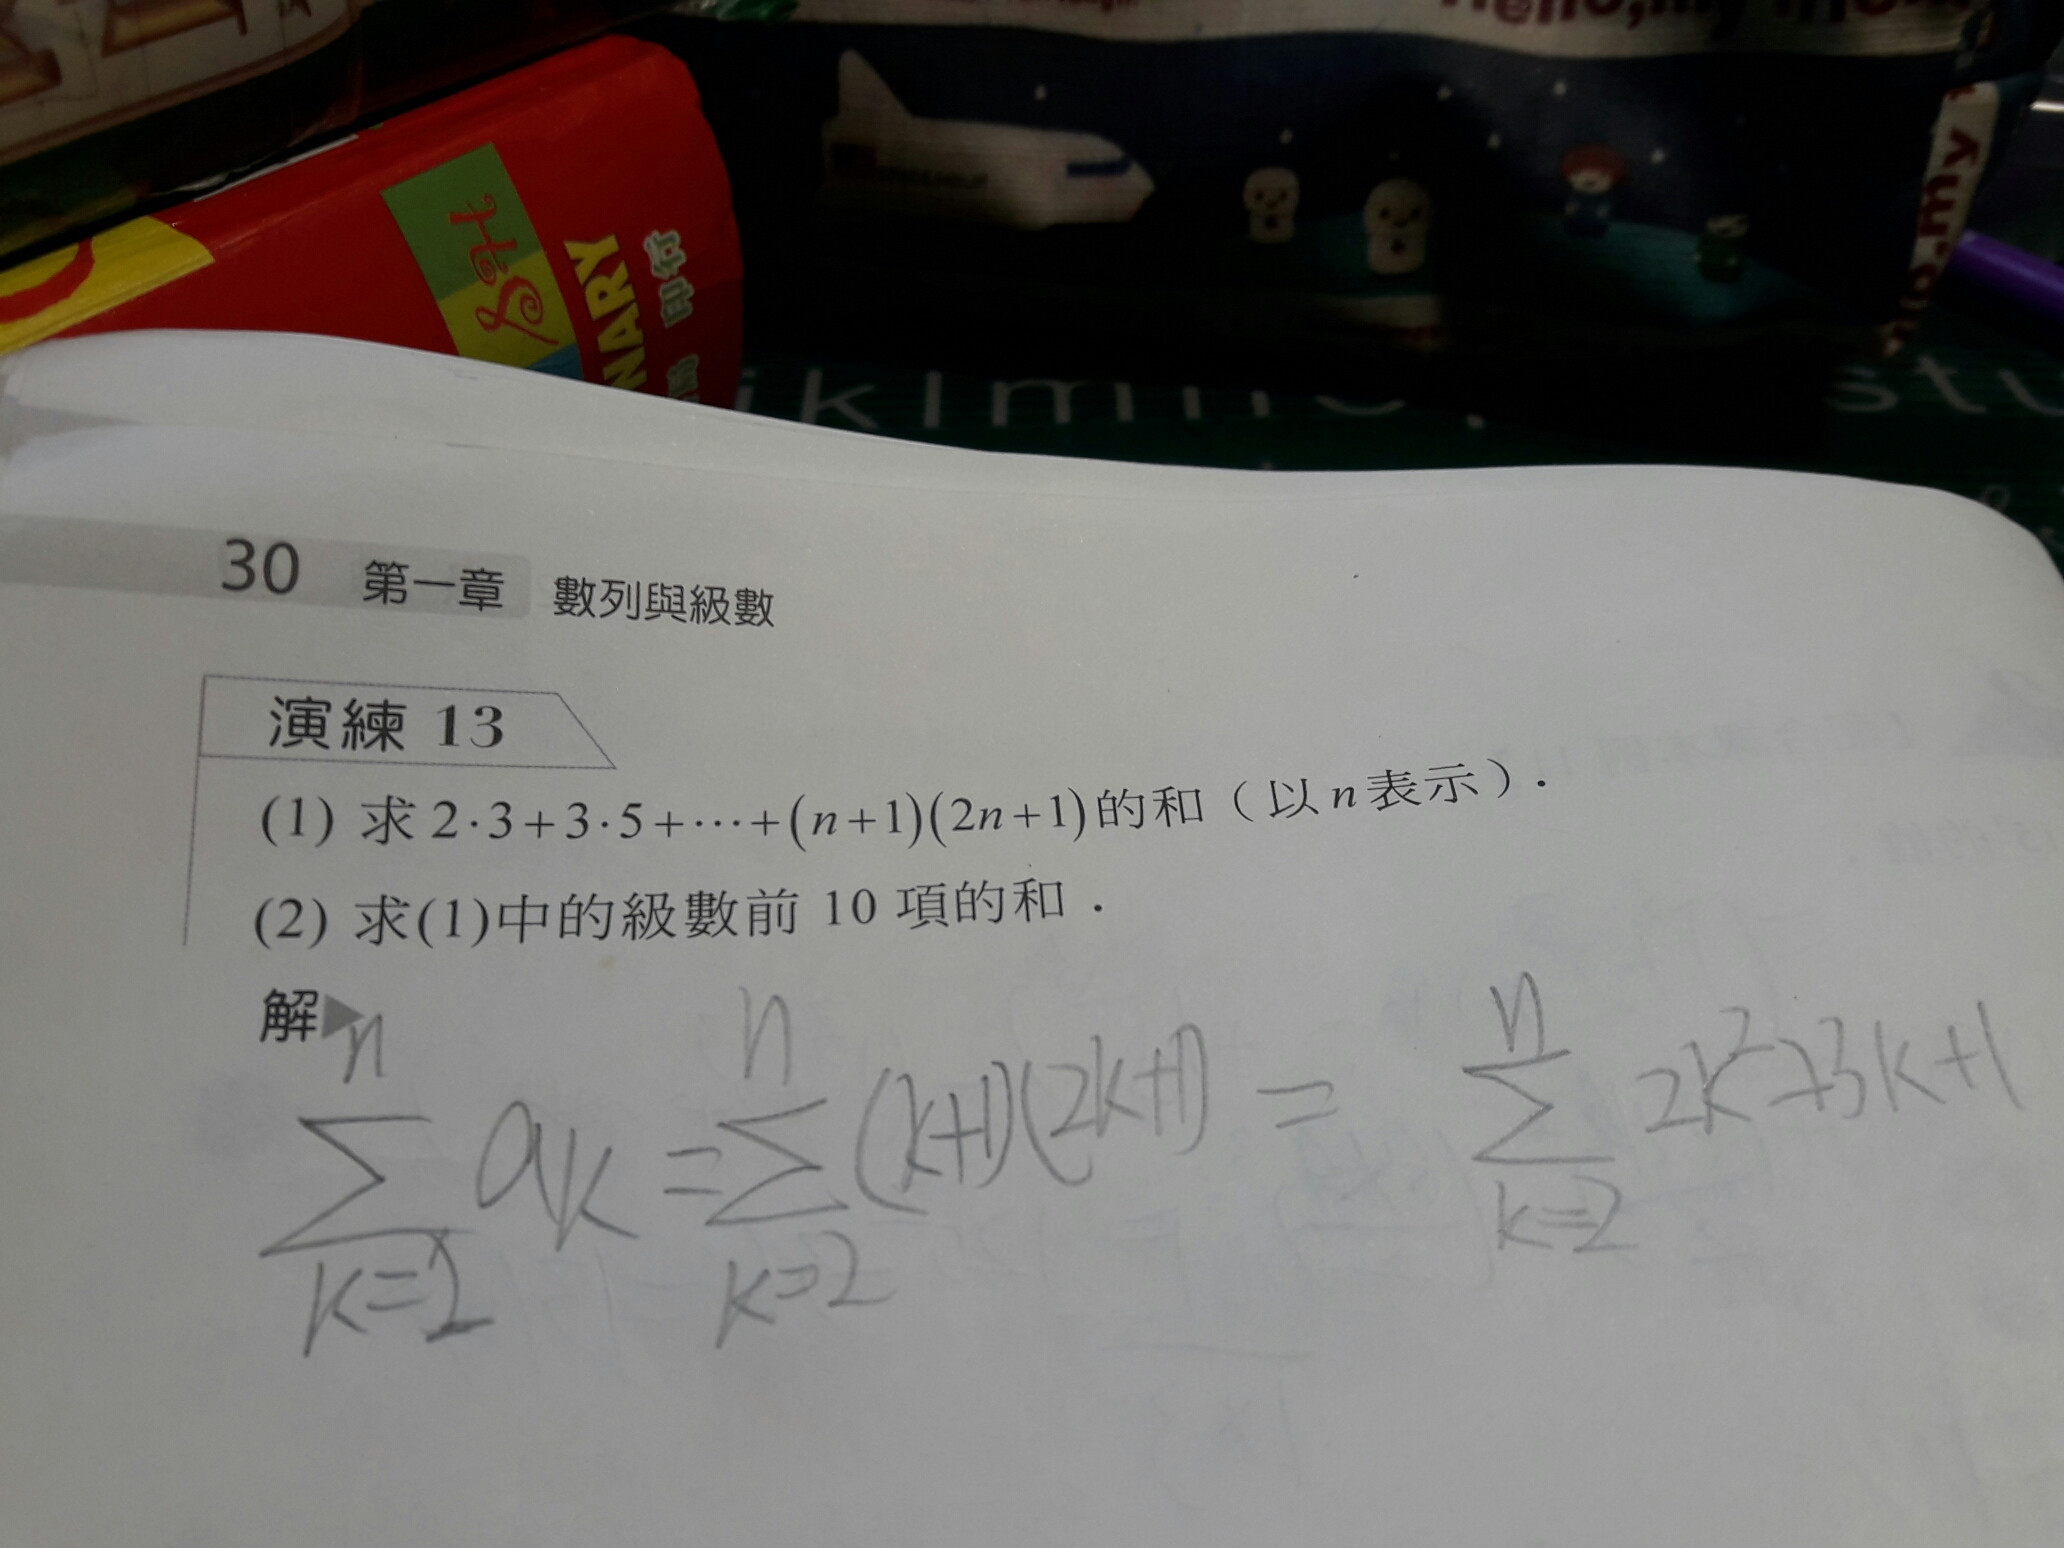 Hello, my
SH
NARY
印行
iklmno
stu
30 第一章 數列與級數
演練 13
(1) 求 2·3+3·5+⋯+(n+1)(2n+1)的和（以n表示）.
(2) 求(1)中的級數前 10 項的和.
解▶
n n n
∑ ak = ∑ (k+1)(2k+1) = ∑ 2k²+3k+1
k=2 k=2 k=2